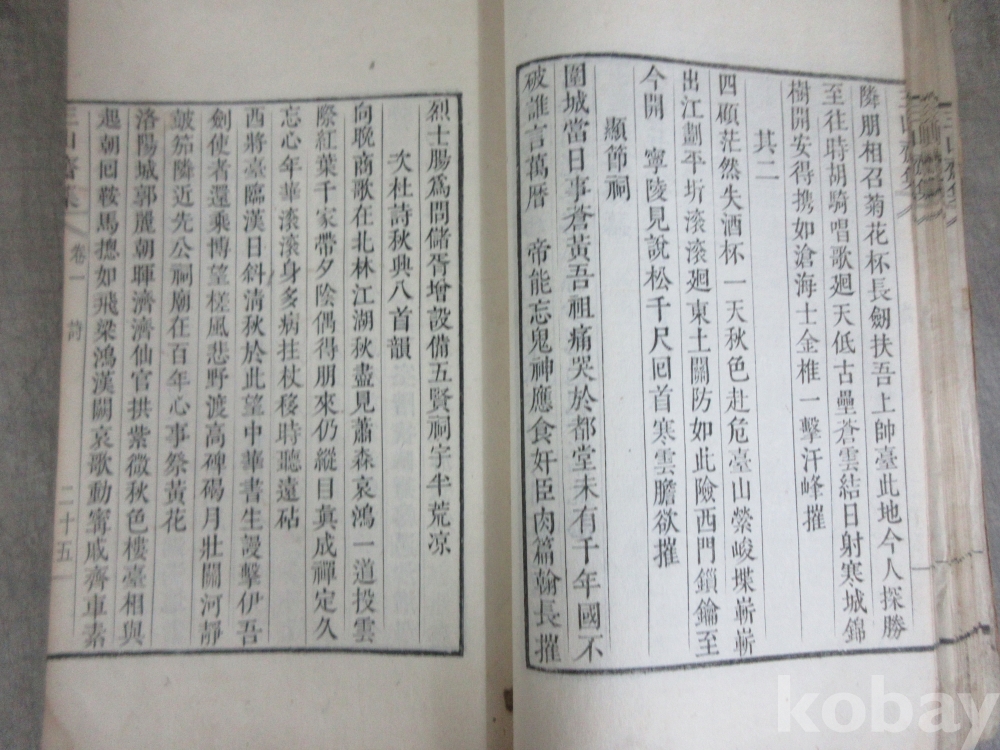 隣朋相召菊花杯長劒扶吾上帥臺此地今人探勝
至往時胡騎唱歌廻天低古壘蒼雲結日射寒城錦
樹開安得携如滄海士金椎一擊汗峰摧
其二
四碩茫然失酒杯一天秋色赴危臺山縈峻堞嶄嶄
出江劃平圻滚滚廻東土關防如此險西門鎖鑰至
今開 寧陵見說松千尺回首寒雲膽欲摧
顯節祠
圍城當日事蒼黃吾祖痛哭於都堂未有千年國不
破誰言萬曆 帝能忘鬼神應食奸臣肉篇翰長摧
烈士腸爲問儲胥增設備五賢祠宇半荒凉
次杜詩秋興八首韻
向晩商歌在北林江湖秋盡見蕭森哀鴻一道投雲
際紅葉千家帶夕陰偶得朋來仍縱目眞成禪定久
忘心年華滚滚身多病拄杖移時聽遠砧
西將臺臨漢日斜清秋於此望中華書生謾擊伊吾
劍使者還乘博望槎風悲野渡高碑碣月壯關河靜
皷笳隣近先公祠廟在百年心事祭黃花
洛陽城郭麗朝暉濟濟仙官拱紫微秋色樓臺相與
起朝回鞍馬摠如飛梁鴻漢闕哀歌動甯戚齊車素
三山齋集 卷一 詩 二十五
kobay